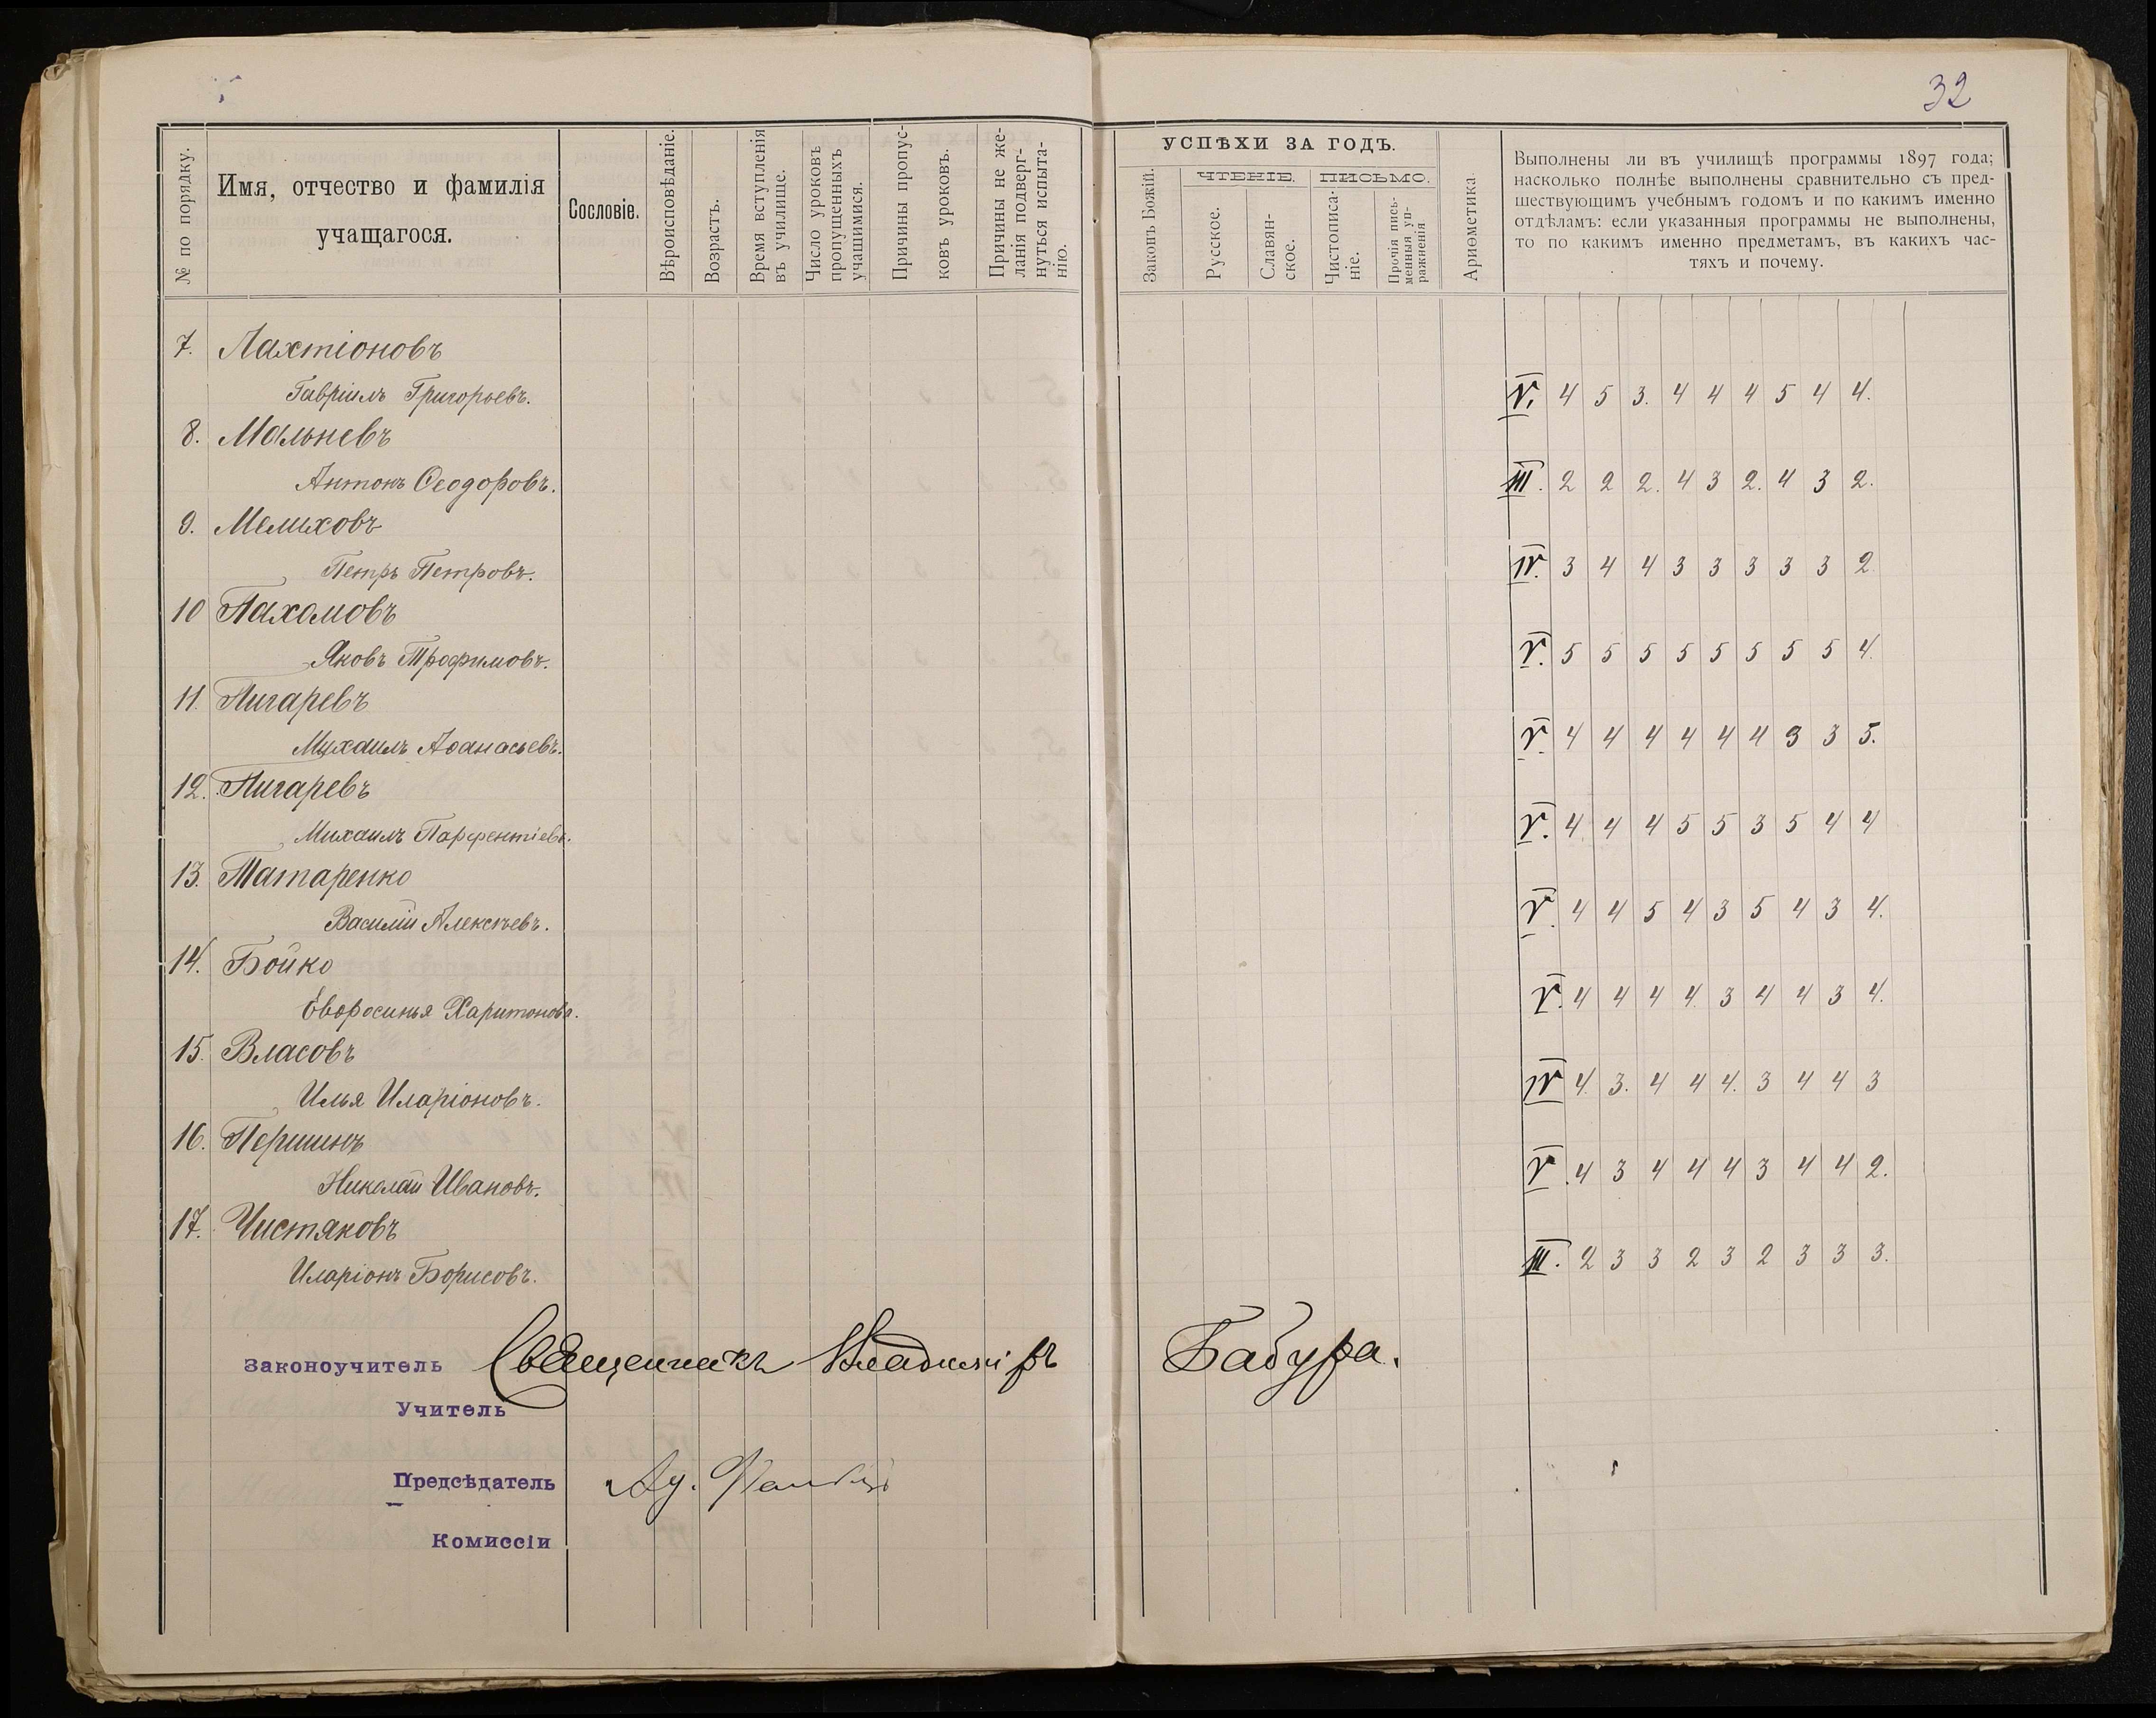 32
№ по порядку.
Имя, отчество и фамилія
учащагося.
Сословіе.
Вѣроисповѣданіе.
Возрастъ.
Время вступленія
въ училище.
Число уроковъ
пропущенныхъ
учащимися.
Причины пропус-
ковъ уроковъ.
Причины не же-
ланія подверг-
нуться испыта-
нію.
УСПѢХИ ЗА ГОДЪ.
Законъ Божій.
ЧТЕНІЕ.
Русское.
Славян-
ское.
ПИСЬМО.
Чистописа-
ніе.
Прочія пись-
менныя уп-
ражненія
Ариѳметика.
Выполнены ли въ училищѣ программы 1897 года;
насколько полнѣе выполнены сравнительно съ пред-
шествующимъ учебнымъ годомъ и по какимъ именно
отдѣламъ: если указанныя программы не выполнены,
то по какимъ именно предметамъ, въ какихъ час-
тяхъ и почему.
7. Лахтіоновъ
Гавріилъ Григорьевъ. V. 4 5 3. 4 4 4 5 4 4.
8. Мальневъ
Антонъ Ѳеодоровъ. III. 2 2 2. 4 3 2. 4 3 2.
9. Мелиховъ
Петръ Петровъ. IV. 3 4 4 3 3 3 3 3 2
10 Пахомовъ
Яковъ Трофимовъ. V. 5 5 5 5 5 5 5 5 4.
11. Пигаревъ
Михаилъ Аѳанасьевъ. V. 4 4 4 4 4 4 3 3 5.
12. Пигаревъ
Михаилъ Парфентіевъ. V. 4 4 4 5 5 3 5 4 4
13. Татаренко
Василій Алексѣевъ. V. 4 4 5 4 3 5 4 3 4.
14. Бойко
Евфросинья Харитонова. V. 4 4 4 4. 3 4 4 3 4.
15. Власовъ
Илья Иларіоновъ. IV 4. 3. 4 4 4. 3 4 4 3
16. Першинъ
Николай Ивановъ. V. 4 3 4 4 4 3 4 4 2.
17. Чистяковъ
Иларіонъ Борисовъ. III. 2 3 3 2 3 2 3 3 3.
Законоучитель Священникъ Владиміръ Бабура.
Учитель
Предсѣдатель
Комиссіи